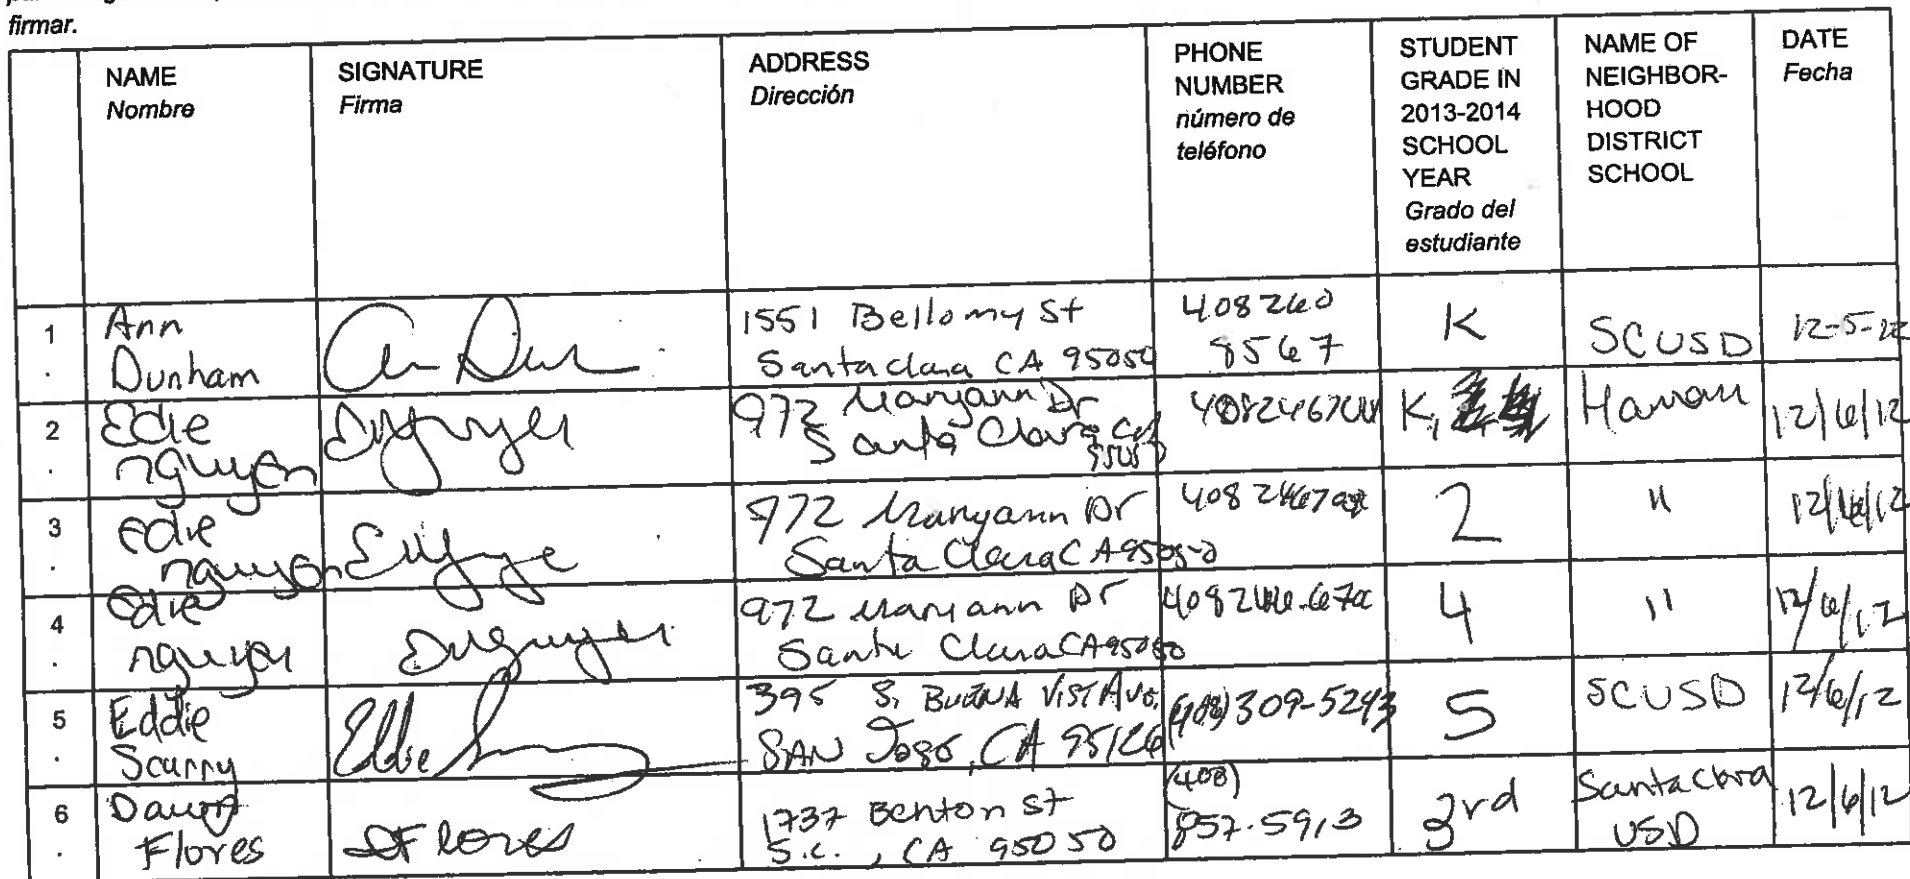 firmar.
NAME
Nombre
SIGNATURE
Firma
ADDRESS
Dirección
PHONE
NUMBER
número de
teléfono
STUDENT
GRADE IN
2013-2014
SCHOOL
YEAR
Grado del
estudiante
NAME OF
NEIGHBOR-
HOOD
DISTRICT
SCHOOL
DATE
Fecha
1
.
Ann
Dunham
1551 Bellomy St
Santa Clara CA 95050
408 260
8567
K
SCUSD
12-5-12
2
.
Edie
nguyen
972 Maryann Dr
Santa Clara Ca
95050
K,
12/6/12
3
.
Edie
nguyen
972 Maryann Dr
Santa Clara CA 95050
408
2
"
12/6/12
4
.
Edie
nguyen
972 Maryann Dr
Santa Clara CA 95050
408
4
"
12/6/12
5
.
Eddie
Scurry
Eddie
395 S. BUENA VIST AVE.
SAN JOSE, CA 95126
(408) 309-5243
5
SCUSD
12/6/12
6
.
Dawn
Flores
DFlores
1737 Benton St
S.C., CA 95050
(408)
857-5913
3rd
Santa Clara
USD
12/6/12